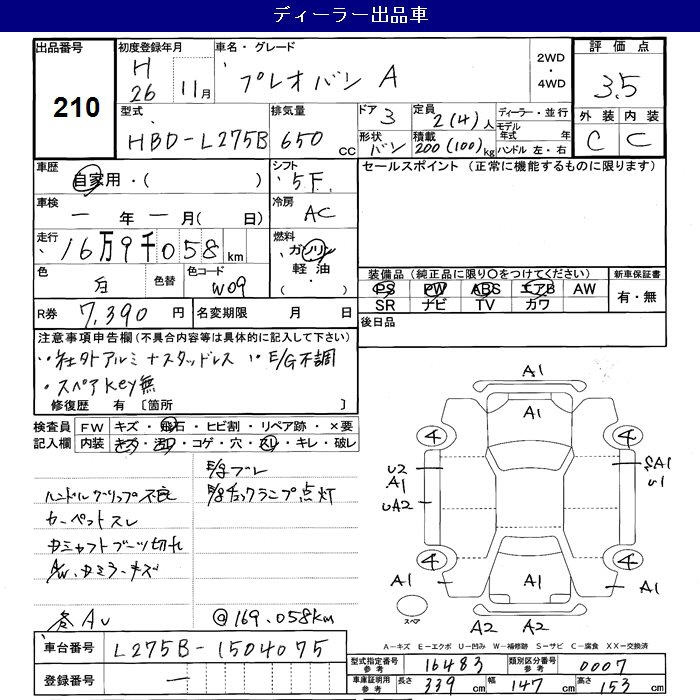 ディーラー出品車
出品番号 210
初度登録年月 H26 11月
車名・グレード プレオバン A
2WD・4WD
評価点 3.5
型式 HBD-L275B
排気量 650 cc
ドア 3
形状 バン
定員 2(4)人
積載 200(100)kg
ディーラー・並行
モデル年式 年
ハンドル 左・右
外装 C 内装 C
車歴 自家用・( )
シフト 5F
セールスポイント (正常に機能するものに限ります)
車検 ー年ー月( 日)
冷房 AC
走行 16万9千058km
燃料 ガソリン・軽油・( )
色 白 色替 色コード W09
装備品 (純正品に限り○をつけてください)
新車保証書 有・無
PS PW ABS エアB AW
SR ナビ TV カワ
R券 7,390円 名変期限 月 日
後日品
注意事項申告欄(不具合内容等は具体的に記入して下さい)
社外アルミ+スタッドレス E/G不調
・スペアkey無
修復歴 有 [箇所 ]
検査員記入欄
FW キズ・飛石・ヒビ割・リペア跡・×要
内装 キズ・汚れ・コゲ・穴・スレ・キレ・破レ
E/gブレ
ハンドルグリップ不良 E/gチェックランプ点灯
カーペットスレ
シャフトブーツ切れ
A/W、ミラーキズ
冬AW @169.058km
A1
A1
4 4
U2 A1 UA2
SA1 U1
4 4
A1 A1 A1
スペア
A2 A2
A-キズ E-エクボ U-凹み W-補修跡 S-サビ C-腐食 XX-交換済
車台番号 L275B-1504075
登録番号 ー
型式指定番号参考 16483 類別区分番号参考 0007
車庫証明用参考 長さ 339cm 幅 147cm 高さ 153cm